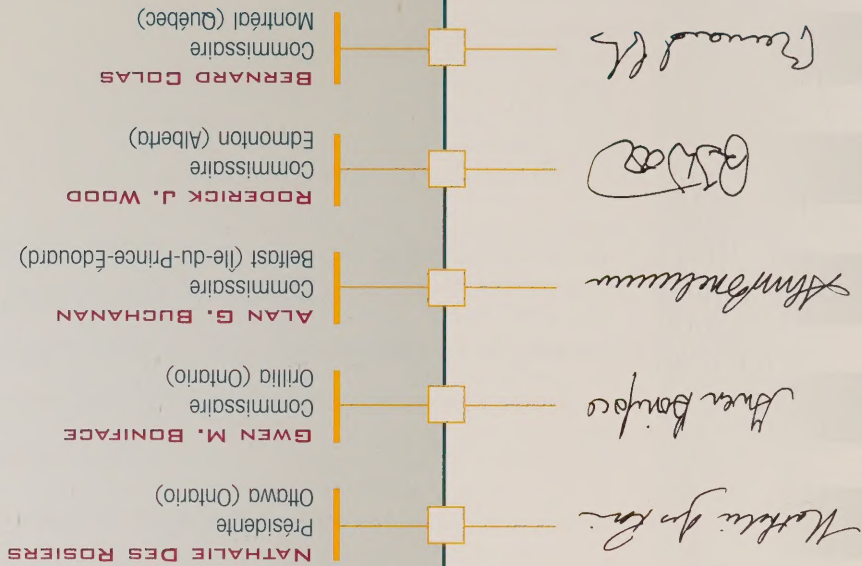 NATHALIE DES ROSIERS
Présidente
Ottawa (Ontario)
Nathalie Des Rosiers
GWEN M. BONIFACE
Commissaire
Orillia (Ontario)
Gwen Boniface
ALAN G. BUCHANAN
Commissaire
Belfast (Île-du-Prince-Édouard)
RODERICK J. WOOD
Commissaire
Edmonton (Alberta)
BERNARD COLAS
Commissaire
Montréal (Québec)